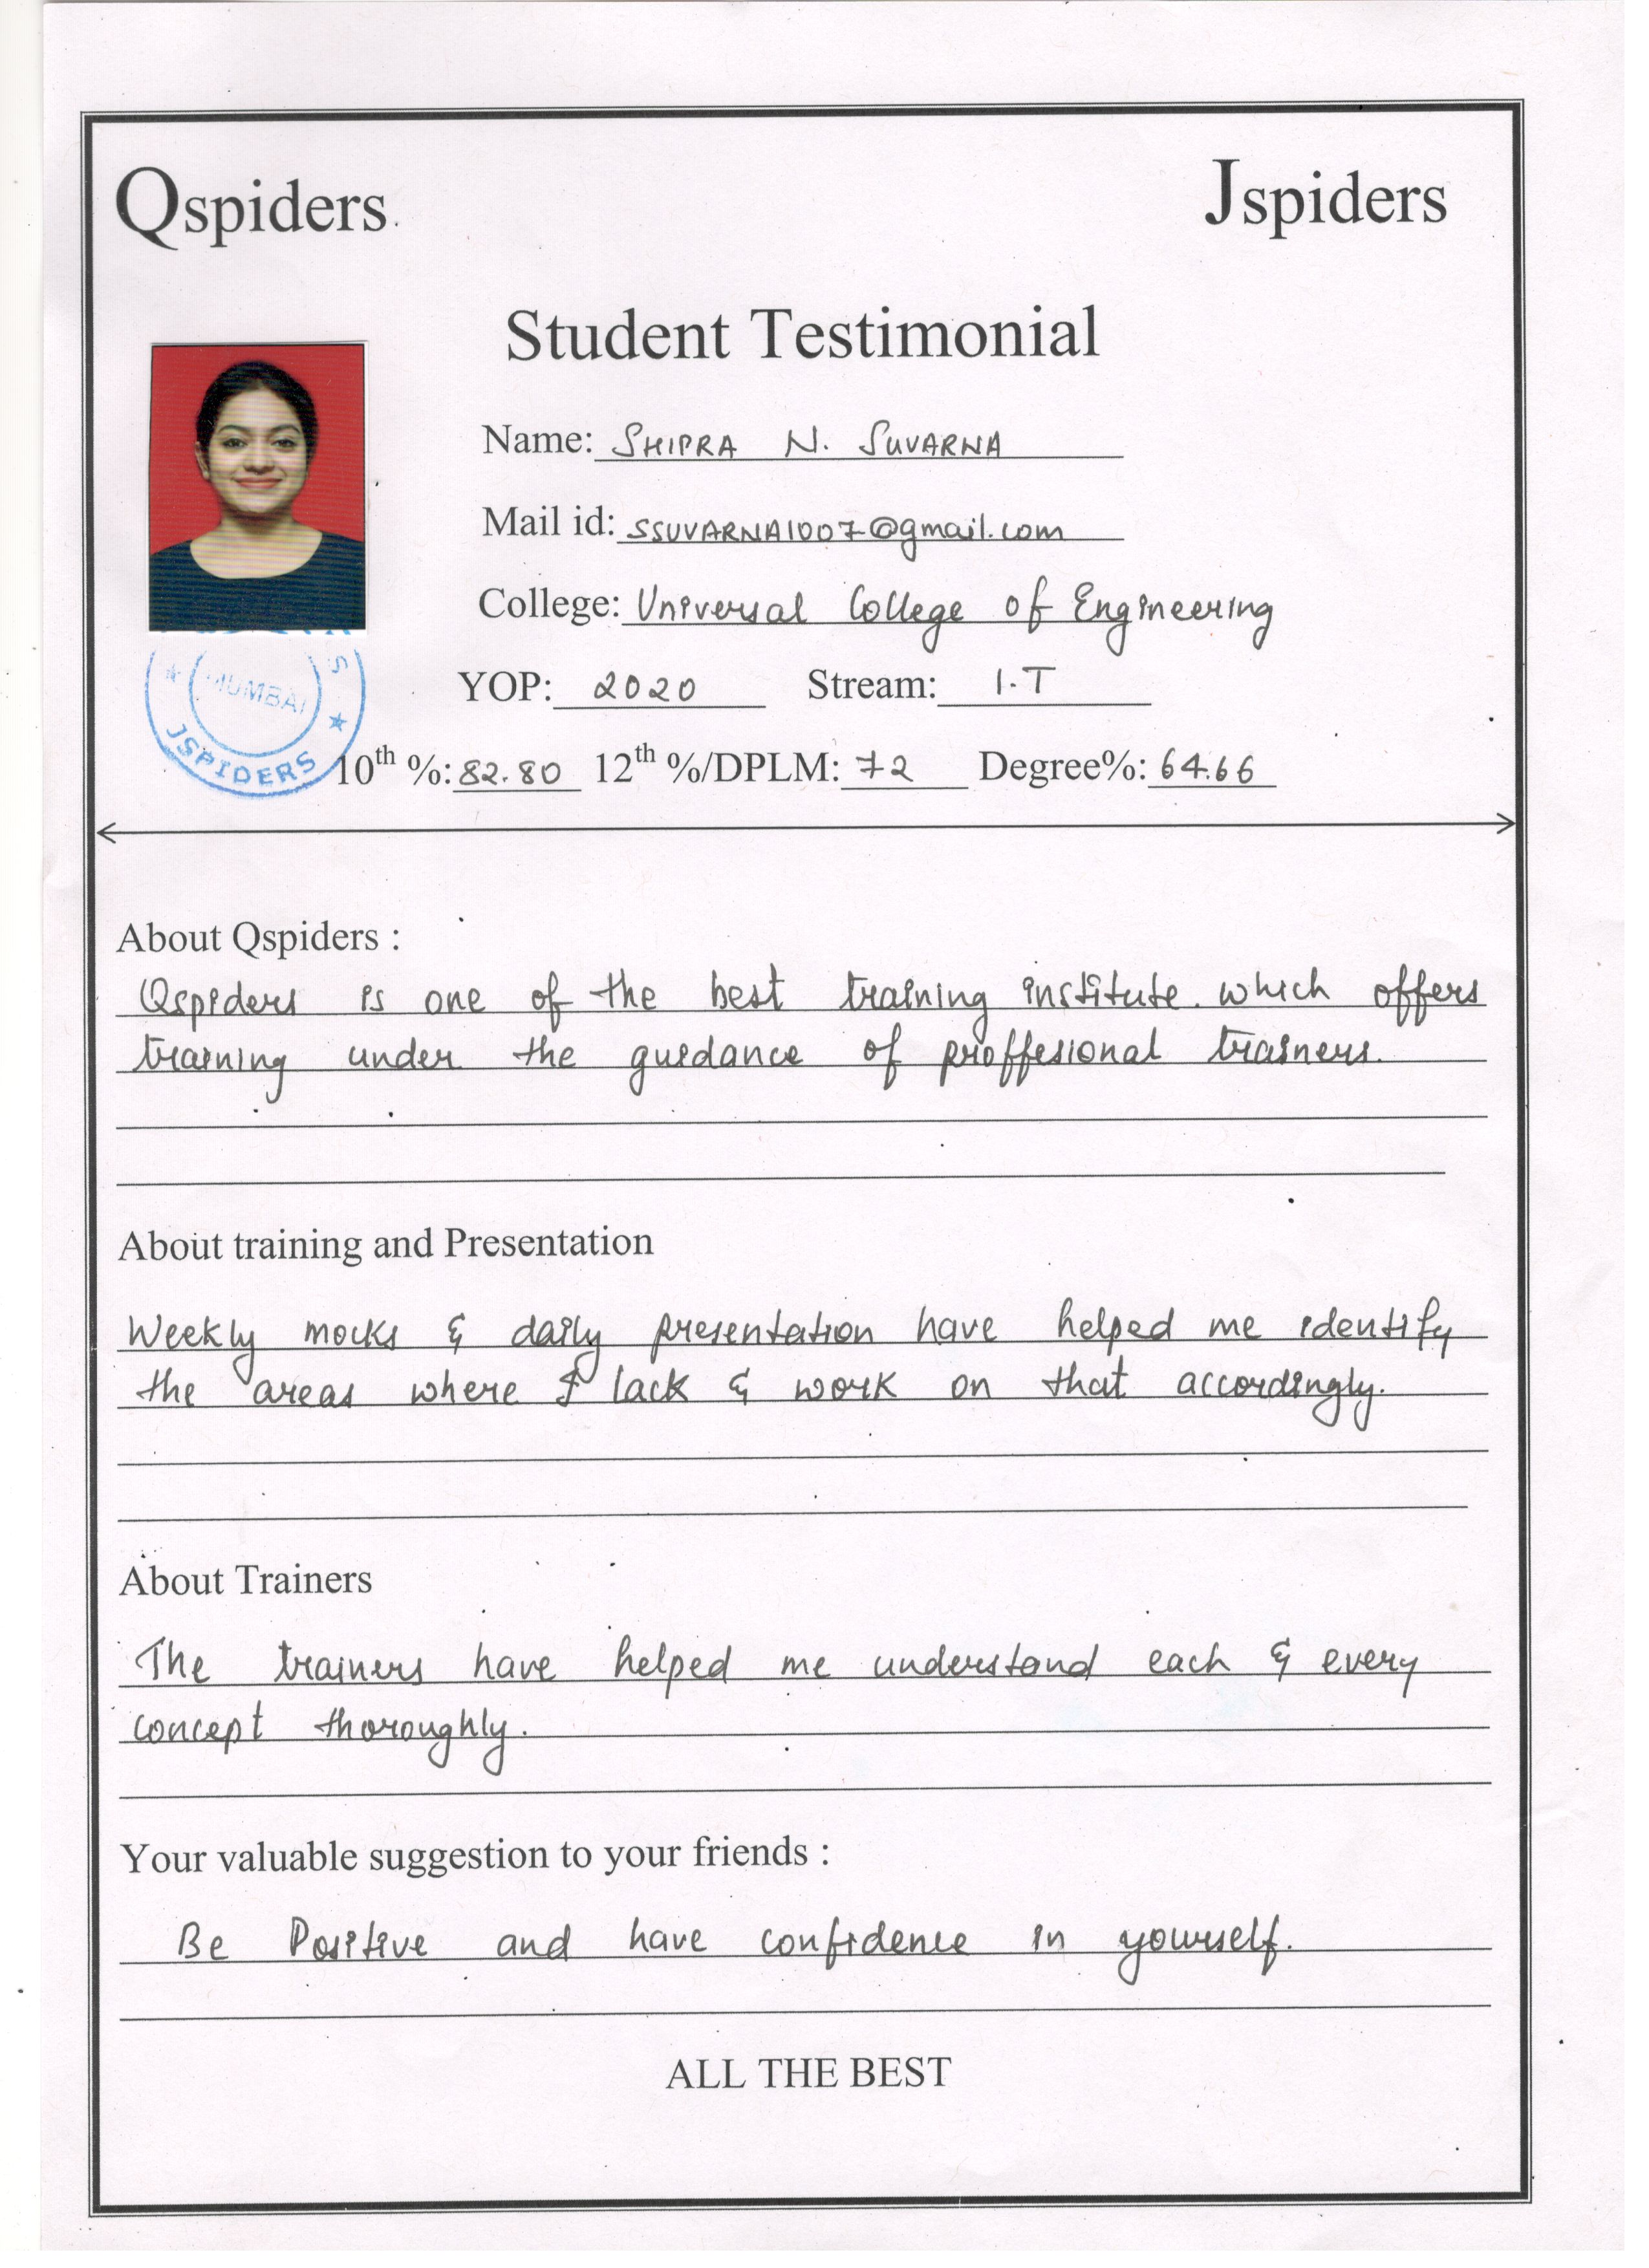 Qspiders Jspiders
Student Testimonial
Name: SHIPRA N. SUVARNA
Mail id: SSUVARNA1007@gmail.com
College: Universal College of Engineering
YOP: 2020 Stream: I.T
MUMBAI
JSPIDERS
10th %: 82.80 12th %/DPLM: 72 Degree%: 64.66
About Qspiders :
Qspiders is one of the best training institute which offers
training under the guidance of proffesional trainers.
About training and Presentation
Weekly mocks & daily presentation have helped me identify
the areas where I lack & work on that accordingly.
About Trainers
The trainers have helped me understand each & every
concept thoroughly.
Your valuable suggestion to your friends :
Be Positive and have confidence in yourself.
ALL THE BEST